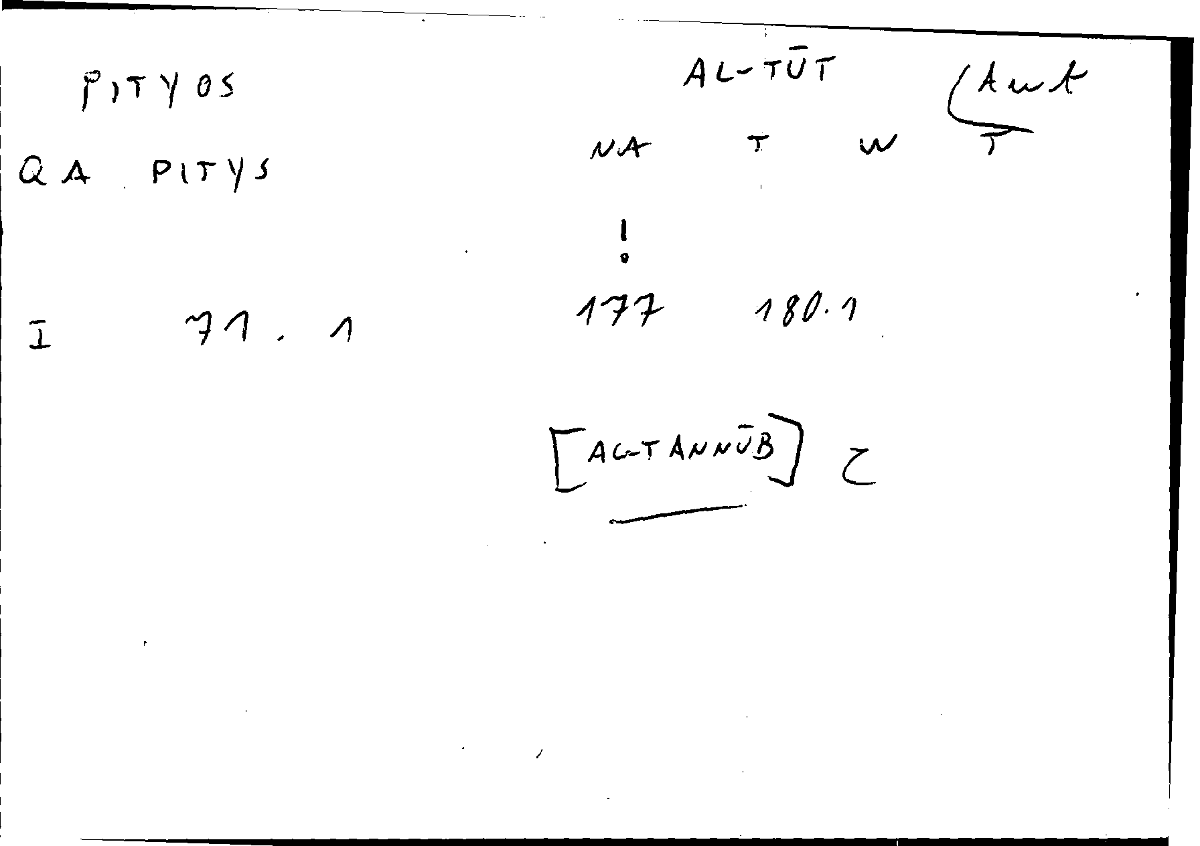 PITYOS AL-TŪT
QA PITYS NA T W T
!
I 71.1 177 180.1
[AL-TANNŪB]